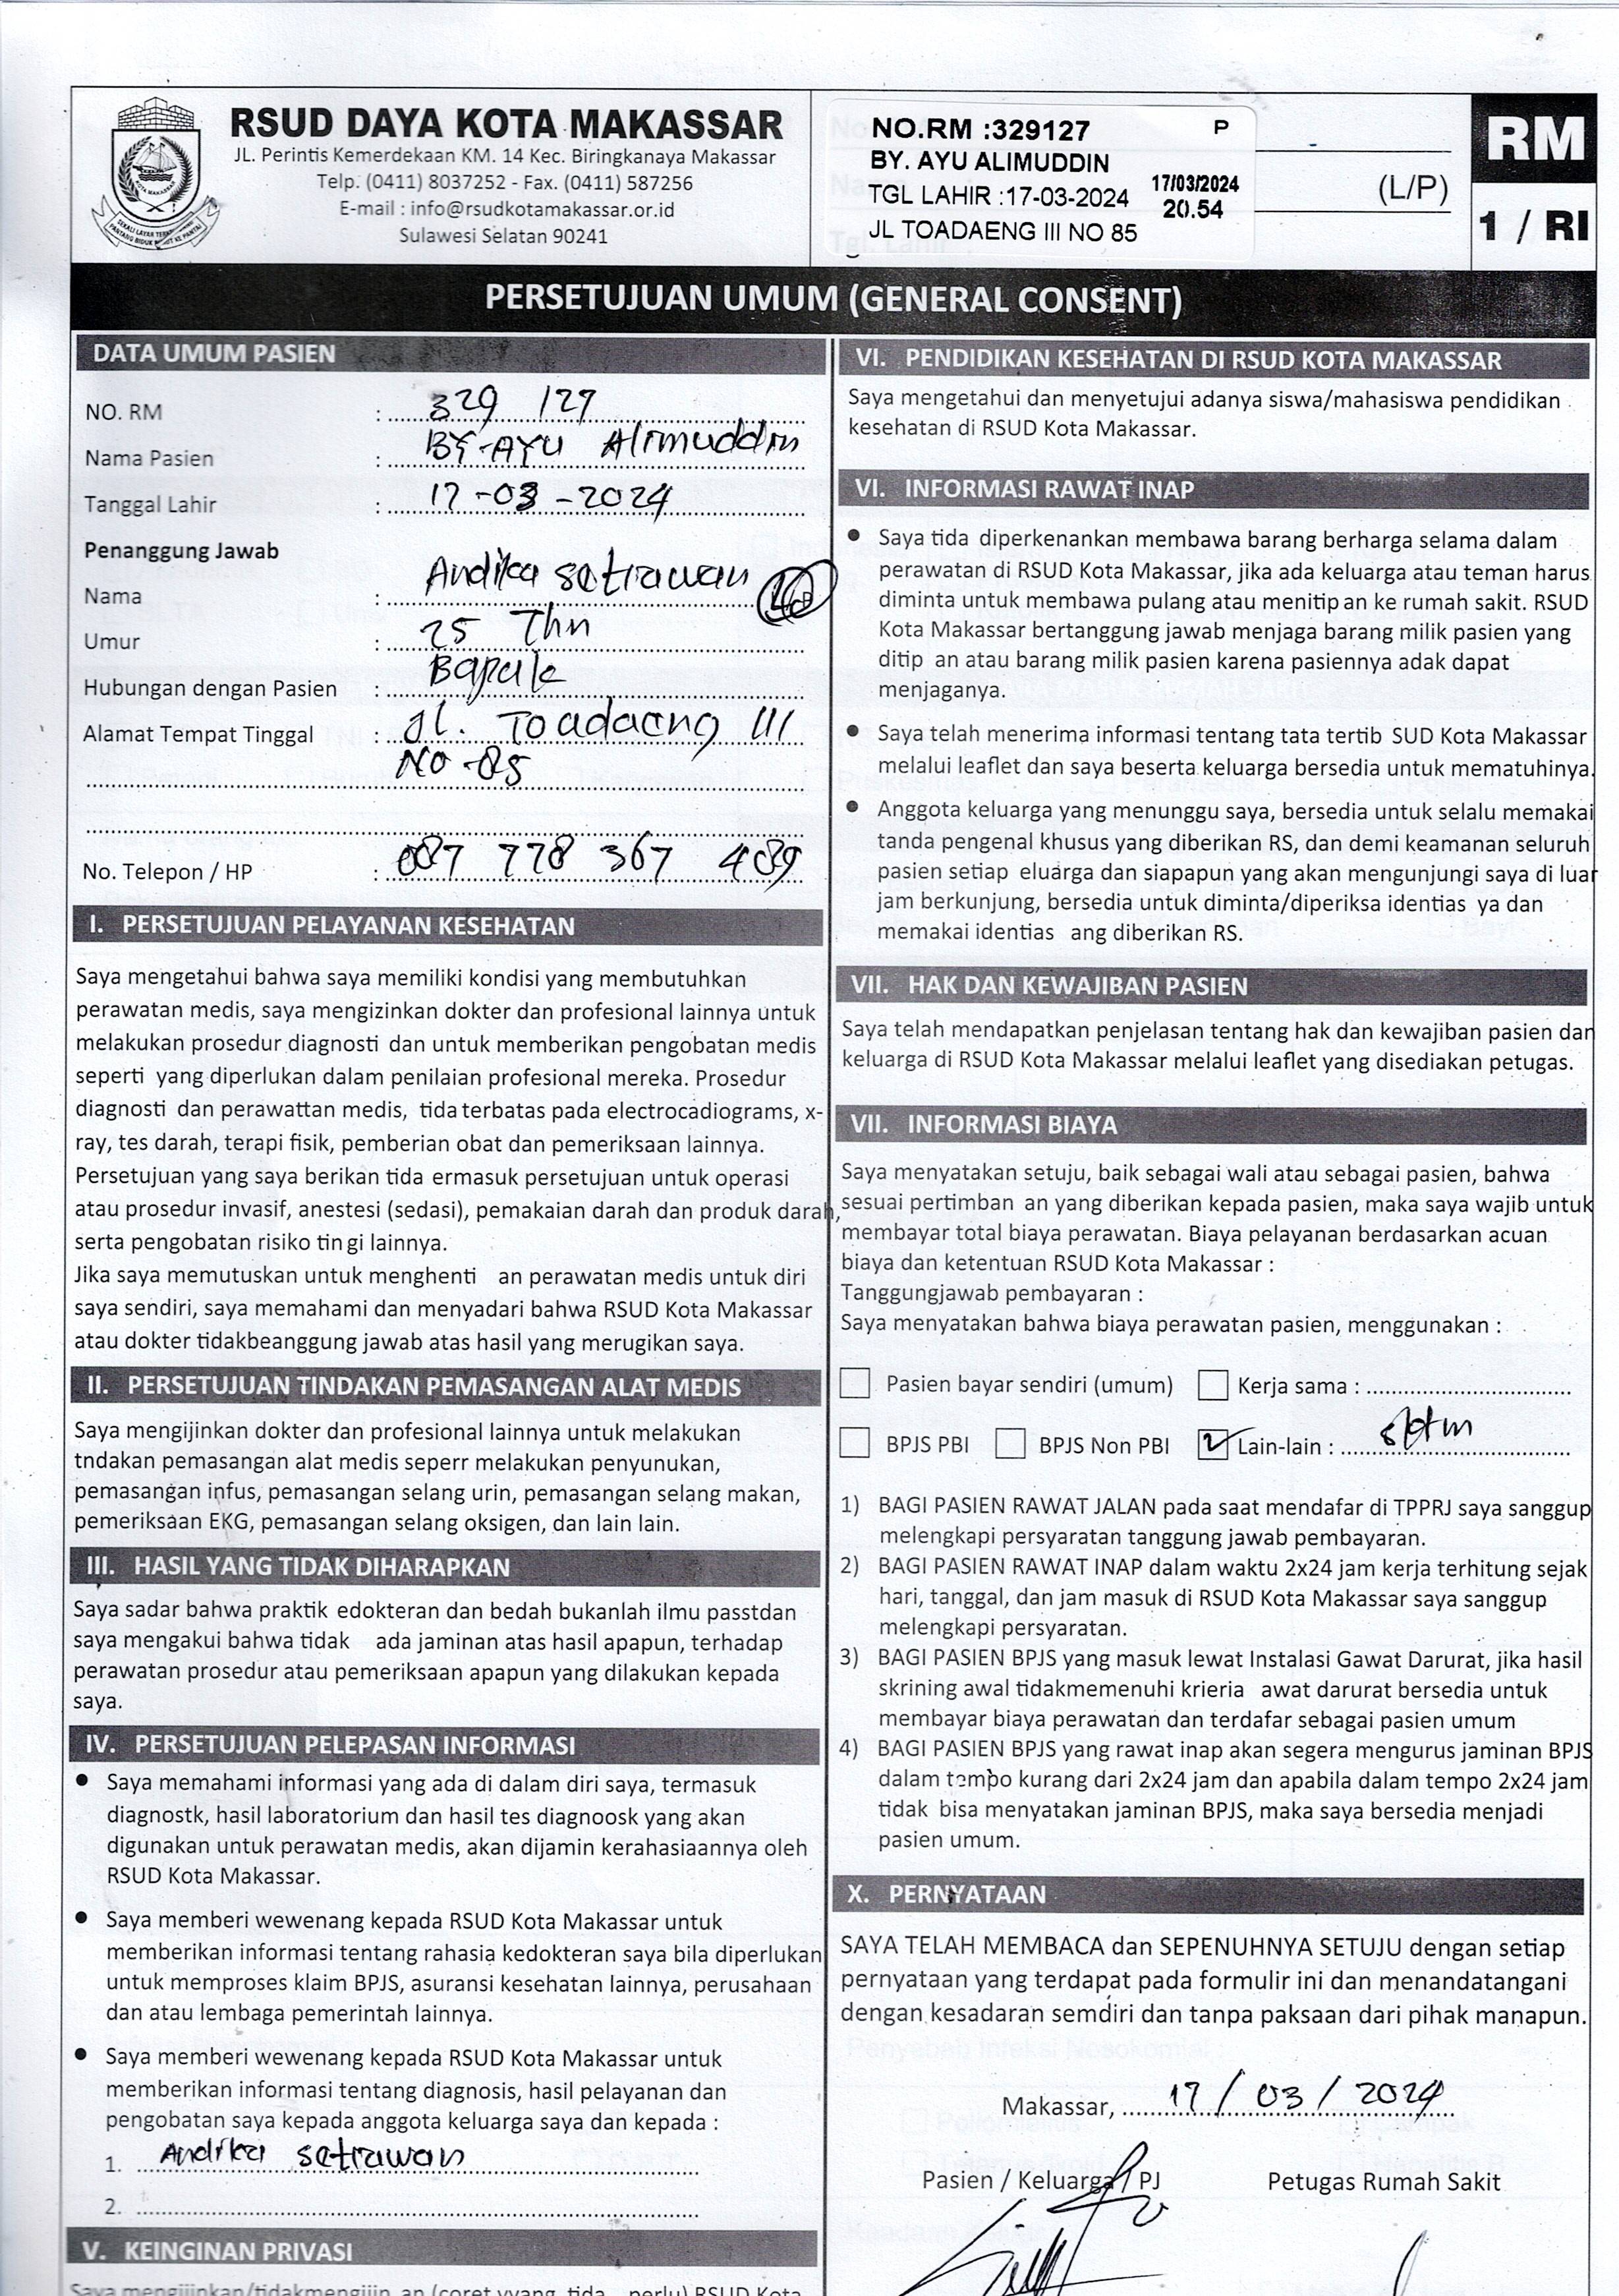 RSUD DAYA KOTA MAKASSAR
JL. Perintis Kemerdekaan KM. 14 Kec. Biringkanaya Makassar
Telp. (0411) 8037252 - Fax. (0411) 587256
E-mail : info@rsudkotamakassar.or.id
Sulawesi Selatan 90241
NO.RM :329127 P
BY. AYU ALIMUDDIN
TGL LAHIR :17-03-2024 17/03/2024 20.54
JL TOADAENG III NO 85
(L/P)
RM
1 / RI
PERSETUJUAN UMUM (GENERAL CONSENT)
DATA UMUM PASIEN
NO. RM : 329 127
Nama Pasien : BY-AYU Alimuddin
Tanggal Lahir : 17-03-2024
Penanggung Jawab
Nama : Andika setiawan
Umur : 25 Thn
Hubungan dengan Pasien : Bapak
Alamat Tempat Tinggal : Jl. Toadaeng III
No-85
No. Telepon / HP : 087 778 367 489
I. PERSETUJUAN PELAYANAN KESEHATAN
Saya mengetahui bahwa saya memiliki kondisi yang membutuhkan
perawatan medis, saya mengizinkan dokter dan profesional lainnya untuk
melakukan prosedur diagnosti dan untuk memberikan pengobatan medis
seperti yang diperlukan dalam penilaian profesional mereka. Prosedur
diagnosti dan perawattan medis, tida terbatas pada electrocadiograms, x-
ray, tes darah, terapi fisik, pemberian obat dan pemeriksaan lainnya.
Persetujuan yang saya berikan tida ermasuk persetujuan untuk operasi
atau prosedur invasif, anestesi (sedasi), pemakaian darah dan produk darah,
serta pengobatan risiko tin gi lainnya.
Jika saya memutuskan untuk menghenti an perawatan medis untuk diri
saya sendiri, saya memahami dan menyadari bahwa RSUD Kota Makassar
atau dokter tidakbeanggung jawab atas hasil yang merugikan saya.
II. PERSETUJUAN TINDAKAN PEMASANGAN ALAT MEDIS
Saya mengijinkan dokter dan profesional lainnya untuk melakukan
tndakan pemasangan alat medis seperr melakukan penyunukan,
pemasangan infus, pemasangan selang urin, pemasangan selang makan,
pemeriksaan EKG, pemasangan selang oksigen, dan lain lain.
III. HASIL YANG TIDAK DIHARAPKAN
Saya sadar bahwa praktik edokteran dan bedah bukanlah ilmu passtdan
saya mengakui bahwa tidak ada jaminan atas hasil apapun, terhadap
perawatan prosedur atau pemeriksaan apapun yang dilakukan kepada
saya.
IV. PERSETUJUAN PELEPASAN INFORMASI
● Saya memahami informasi yang ada di dalam diri saya, termasuk
diagnostk, hasil laboratorium dan hasil tes diagnoosk yang akan
digunakan untuk perawatan medis, akan dijamin kerahasiaannya oleh
RSUD Kota Makassar.
● Saya memberi wewenang kepada RSUD Kota Makassar untuk
memberikan informasi tentang rahasia kedokteran saya bila diperlukan
untuk memproses klaim BPJS, asuransi kesehatan lainnya, perusahaan
dan atau lembaga pemerintah lainnya.
● Saya memberi wewenang kepada RSUD Kota Makassar untuk
memberikan informasi tentang diagnosis, hasil pelayanan dan
pengobatan saya kepada anggota keluarga saya dan kepada :
1. Andika setiawan
2.
V. KEINGINAN PRIVASI
Saya mengijinkan/tidakmengijin an (coret yyang tida perlu) RSUD Kota
VI. PENDIDIKAN KESEHATAN DI RSUD KOTA MAKASSAR
Saya mengetahui dan menyetujui adanya siswa/mahasiswa pendidikan
kesehatan di RSUD Kota Makassar.
VI. INFORMASI RAWAT INAP
● Saya tida diperkenankan membawa barang berharga selama dalam
perawatan di RSUD Kota Makassar, jika ada keluarga atau teman harus
diminta untuk membawa pulang atau menitip an ke rumah sakit. RSUD
Kota Makassar bertanggung jawab menjaga barang milik pasien yang
ditip an atau barang milik pasien karena pasiennya adak dapat
menjaganya.
● Saya telah menerima informasi tentang tata tertib SUD Kota Makassar
melalui leaflet dan saya beserta keluarga bersedia untuk mematuhinya.
● Anggota keluarga yang menunggu saya, bersedia untuk selalu memakai
tanda pengenal khusus yang diberikan RS, dan demi keamanan seluruh
pasien setiap eluarga dan siapapun yang akan mengunjungi saya di luar
jam berkunjung, bersedia untuk diminta/diperiksa identias ya dan
memakai identias ang diberikan RS.
VII. HAK DAN KEWAJIBAN PASIEN
Saya telah mendapatkan penjelasan tentang hak dan kewajiban pasien dan
keluarga di RSUD Kota Makassar melalui leaflet yang disediakan petugas.
VII. INFORMASI BIAYA
Saya menyatakan setuju, baik sebagai wali atau sebagai pasien, bahwa
sesuai pertimban an yang diberikan kepada pasien, maka saya wajib untuk
membayar total biaya perawatan. Biaya pelayanan berdasarkan acuan
biaya dan ketentuan RSUD Kota Makassar :
Tanggungjawab pembayaran :
Saya menyatakan bahwa biaya perawatan pasien, menggunakan :
Pasien bayar sendiri (umum) Kerja sama :
BPJS PBI BPJS Non PBI Lain-lain :
1) BAGI PASIEN RAWAT JALAN pada saat mendafar di TPPRJ saya sanggup
melengkapi persyaratan tanggung jawab pembayaran.
2) BAGI PASIEN RAWAT INAP dalam waktu 2x24 jam kerja terhitung sejak
hari, tanggal, dan jam masuk di RSUD Kota Makassar saya sanggup
melengkapi persyaratan.
3) BAGI PASIEN BPJS yang masuk lewat Instalasi Gawat Darurat, jika hasil
skrining awal tidakmemenuhi krieria awat darurat bersedia untuk
membayar biaya perawatan dan terdafar sebagai pasien umum
4) BAGI PASIEN BPJS yang rawat inap akan segera mengurus jaminan BPJS
dalam tempo kurang dari 2x24 jam dan apabila dalam tempo 2x24 jam
tidak bisa menyatakan jaminan BPJS, maka saya bersedia menjadi
pasien umum.
X. PERNYATAAN
SAYA TELAH MEMBACA dan SEPENUHNYA SETUJU dengan setiap
pernyataan yang terdapat pada formulir ini dan menandatangani
dengan kesadaran semdiri dan tanpa paksaan dari pihak manapun.
Makassar, 17/03/2024
Pasien / Keluarga / PJ Petugas Rumah Sakit